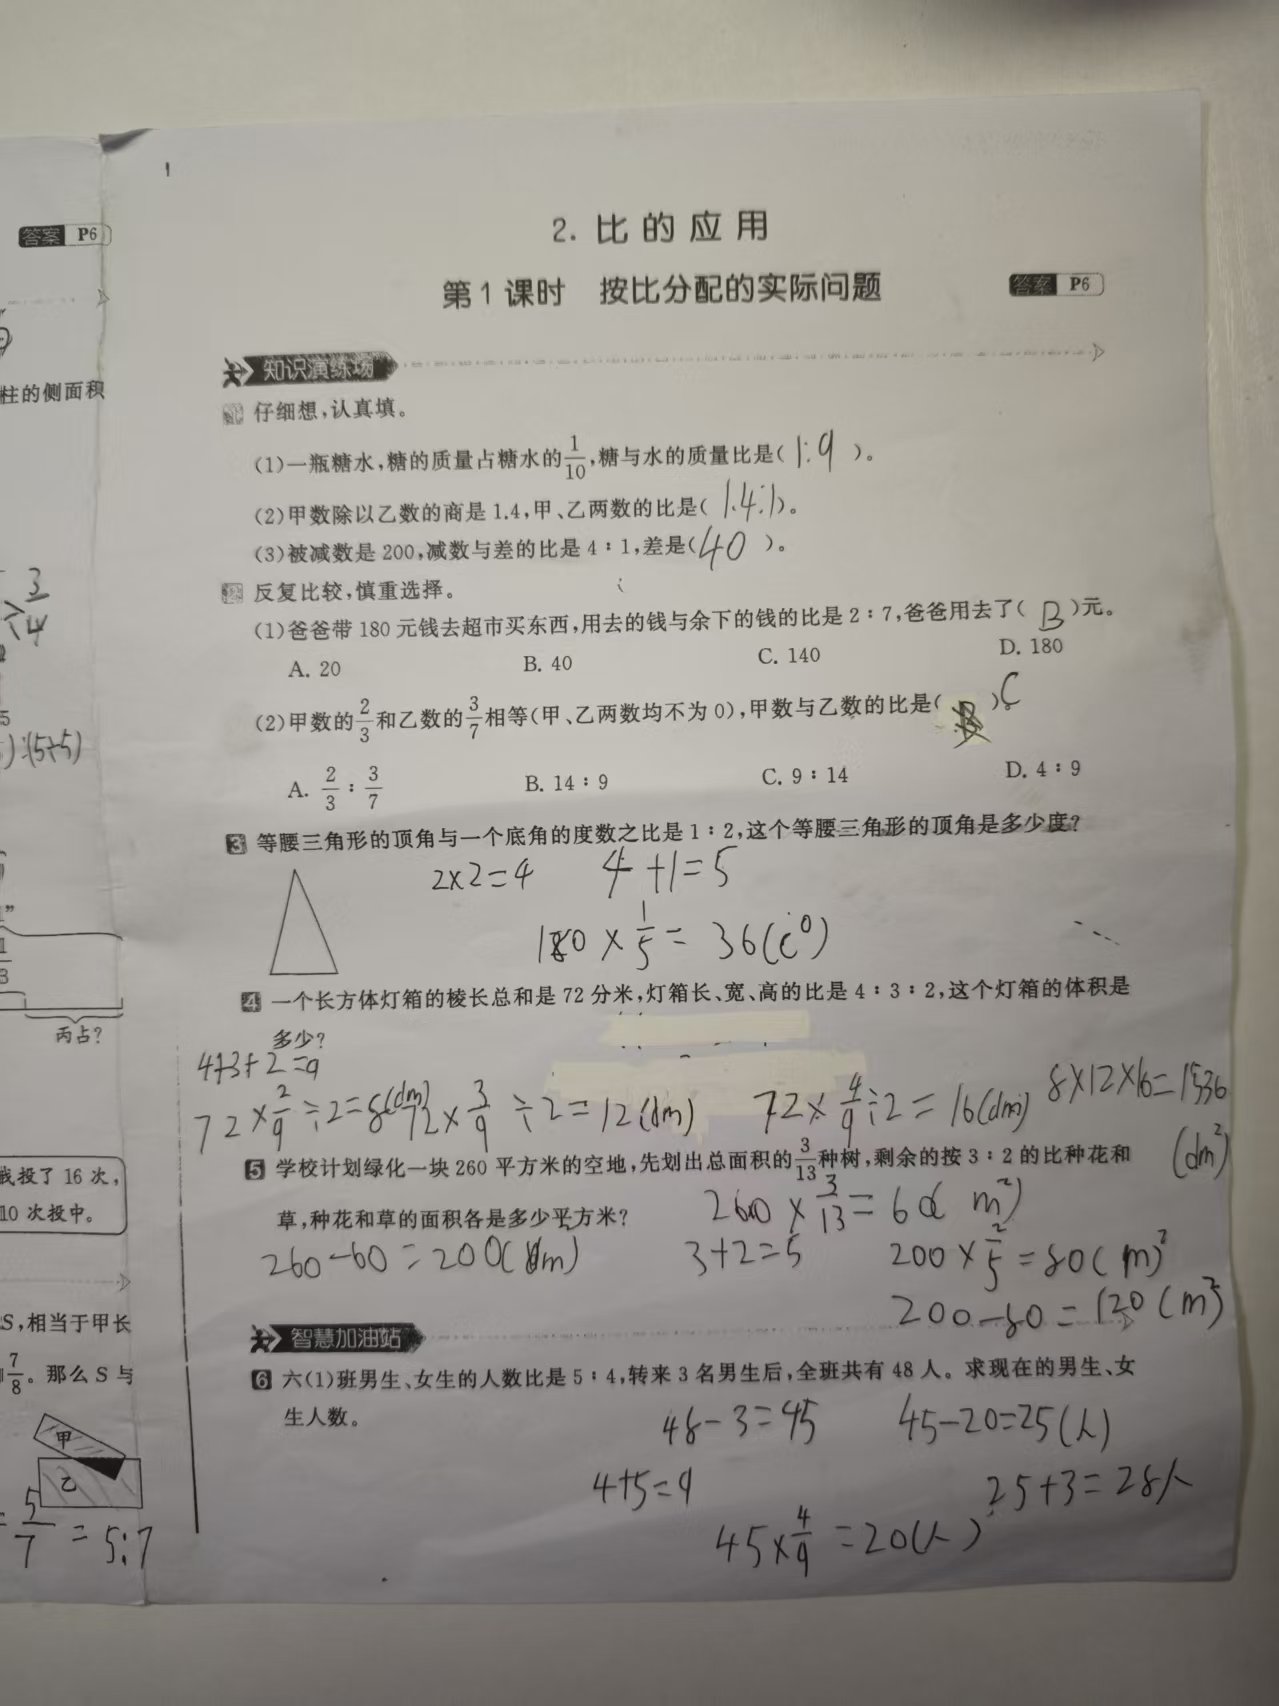 答案 P6
柱的侧面积
3
÷4
):(5+5)
丙占?
我投了 16 次,
10 次投中。
S,相当于甲长
7/8。那么 S 与
甲
乙
= 5/7 = 5:7
2. 比的应用
第 1 课时 按比分配的实际问题
答案 P6
知识演练场
仔细想,认真填。
(1)一瓶糖水,糖的质量占糖水的1/10,糖与水的质量比是( 1:9 )。
(2)甲数除以乙数的商是 1.4,甲、乙两数的比是( 1.4:1 )。
(3)被减数是 200,减数与差的比是 4∶1,差是( 40 )。
反复比较,慎重选择。
(1)爸爸带 180 元钱去超市买东西,用去的钱与余下的钱的比是 2∶7,爸爸用去了( B )元。
A. 20 B. 40 C. 140 D. 180
(2)甲数的2/3和乙数的3/7相等(甲、乙两数均不为 0),甲数与乙数的比是( )C
A. 2/3∶3/7 B. 14∶9 C. 9∶14 D. 4∶9
3 等腰三角形的顶角与一个底角的度数之比是 1∶2,这个等腰三角形的顶角是多少度?
2×2=4 4+1=5
180×1/5=36(°)
4 一个长方体灯箱的棱长总和是 72 分米,灯箱长、宽、高的比是 4∶3∶2,这个灯箱的体积是
多少?
4+3+2=9
72×2/9÷2=8(dm) 72×3/9÷2=12(dm) 72×4/9÷2=16(dm) 8×12×16=1536
(dm²)
5 学校计划绿化一块 260 平方米的空地,先划出总面积的3/13种树,剩余的按 3∶2 的比种花和
草,种花和草的面积各是多少平方米?
260×3/13=60( m²)
260-60=200( m) 3+2=5 200×2/5=80( m)²
200-80=120(m²)
智慧加油站
6 六(1)班男生、女生的人数比是 5∶4,转来 3 名男生后,全班共有 48 人。求现在的男生、女
生人数。
48-3=45 45-20=25(人)
4+5=9 25+3=28人
45×4/9=20(人)